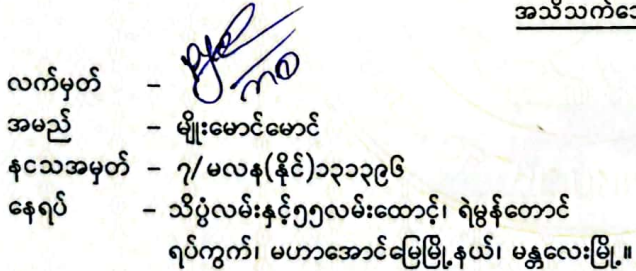 အသိသက်သေ
လက်မှတ် –
အမည် – မျိုးမောင်မောင်
နငသအမှတ် – ၇/မလန(နိုင်)၁၃၁၃၉၆
နေရပ် – သိပ္ပံလမ်းနှင့်၅၅လမ်းထောင့်၊ ရဲမွန်တောင်
ရပ်ကွက်၊ မဟာအောင်မြေမြို့နယ်၊ မန္တလေးမြို့။